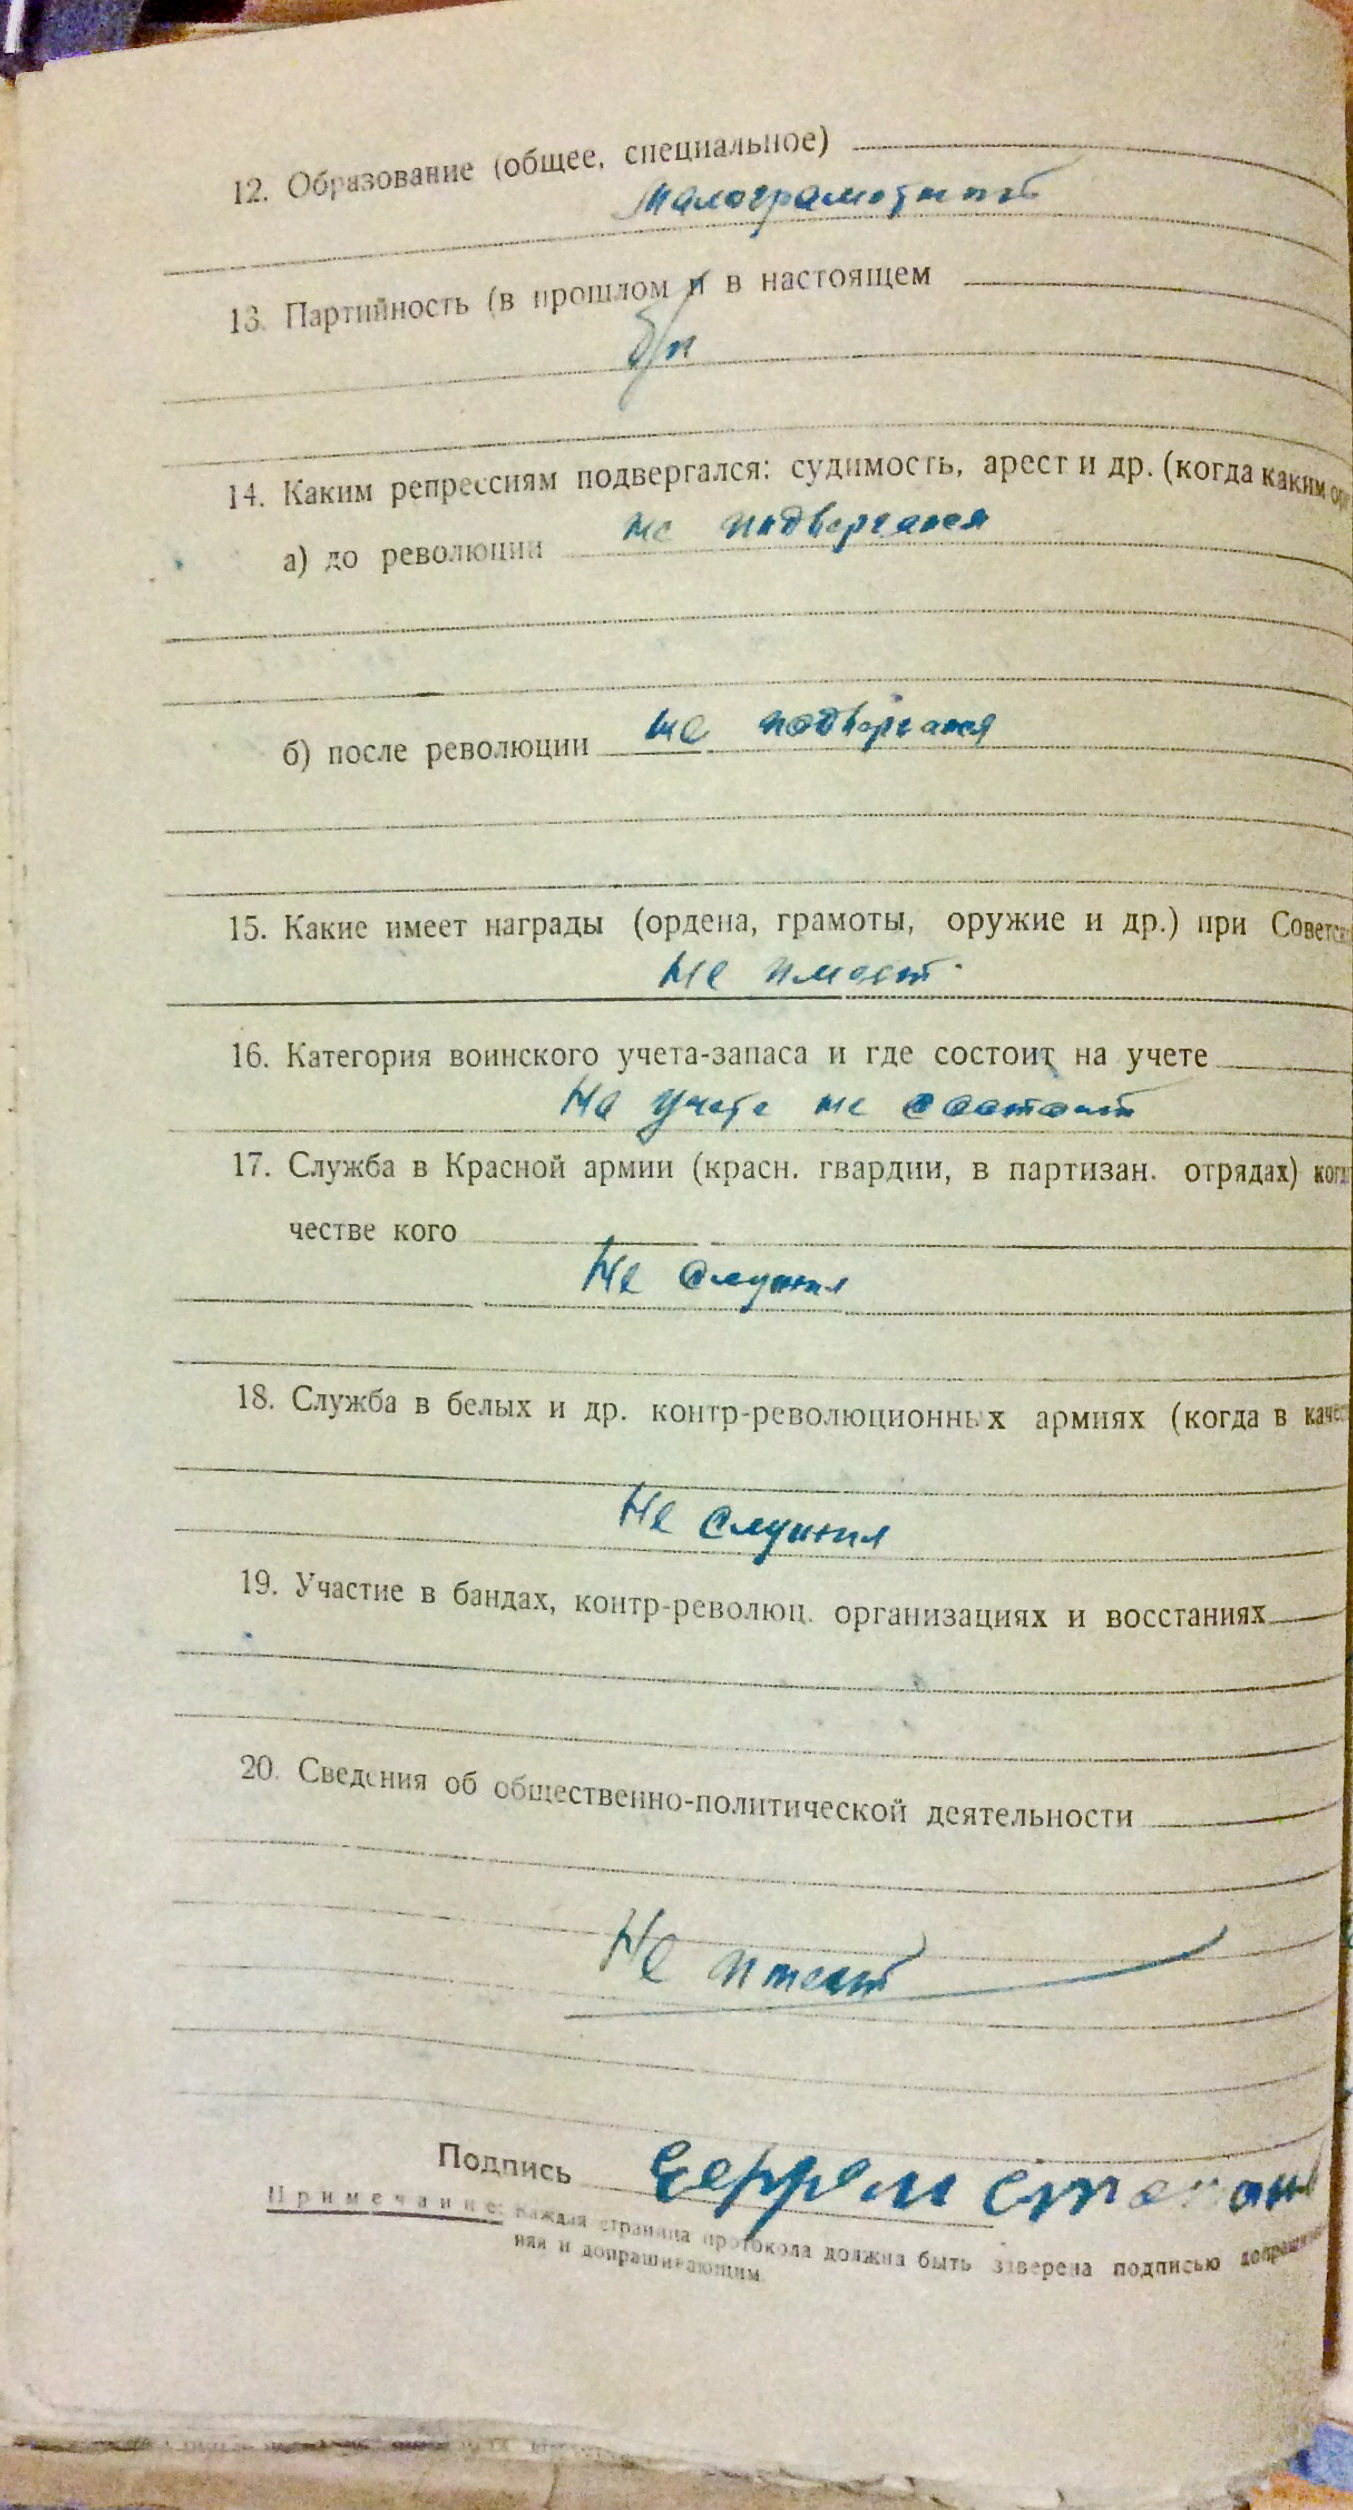 12. Образование (общее, специальное)
малограмотный
13. Партийность (в прошлом и в настоящем
б/п
14. Каким репрессиям подвергался: судимость, арест и др. (когда каким ор
не подвергался
а) до революции
не подвергался
б) после революции
15. Какие имеет награды (ордена, грамоты, оружие и др.) при Советск
не имеет.
16. Категория воинского учета-запаса и где состоит на учете
На учете не состоит
17. Служба в Красной армии (красн. гвардии, в партизан. отрядах) когд
честве кого
Не служил
18. Служба в белых и др. контр-революционных армиях (когда в качес
Не служил
19. Участие в бандах, контр-революц. организациях и восстаниях
20. Сведения об общественно-политической деятельности
Не имеет
Подпись
Примечание: Каждая страница протокола должна быть заверена подписью допрашивае
ная и допрашивающим.